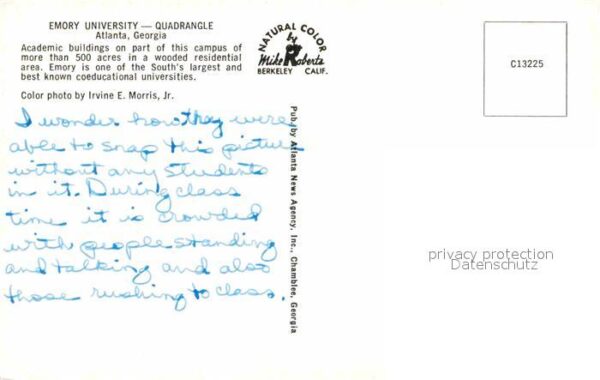 EMORY UNIVERSITY — QUADRANGLE
Atlanta, Georgia
Academic buildings on part of this campus of
more than 500 acres in a wooded residential
area. Emory is one of the South's largest and
best known coeducational universities.
Color photo by Irvine E. Morris, Jr.
I wonder how they were
able to snap this picture
without any students
in it. During class
time it is crowded
with people standing
and talking and also
those rushing to class.
NATURAL COLOR
by
Mike Roberts
BERKELEY CALIF.
Pub. by Atlanta News Agency, Inc., Chamblee, Georgia
C13225
privacy protection
Datenschutz